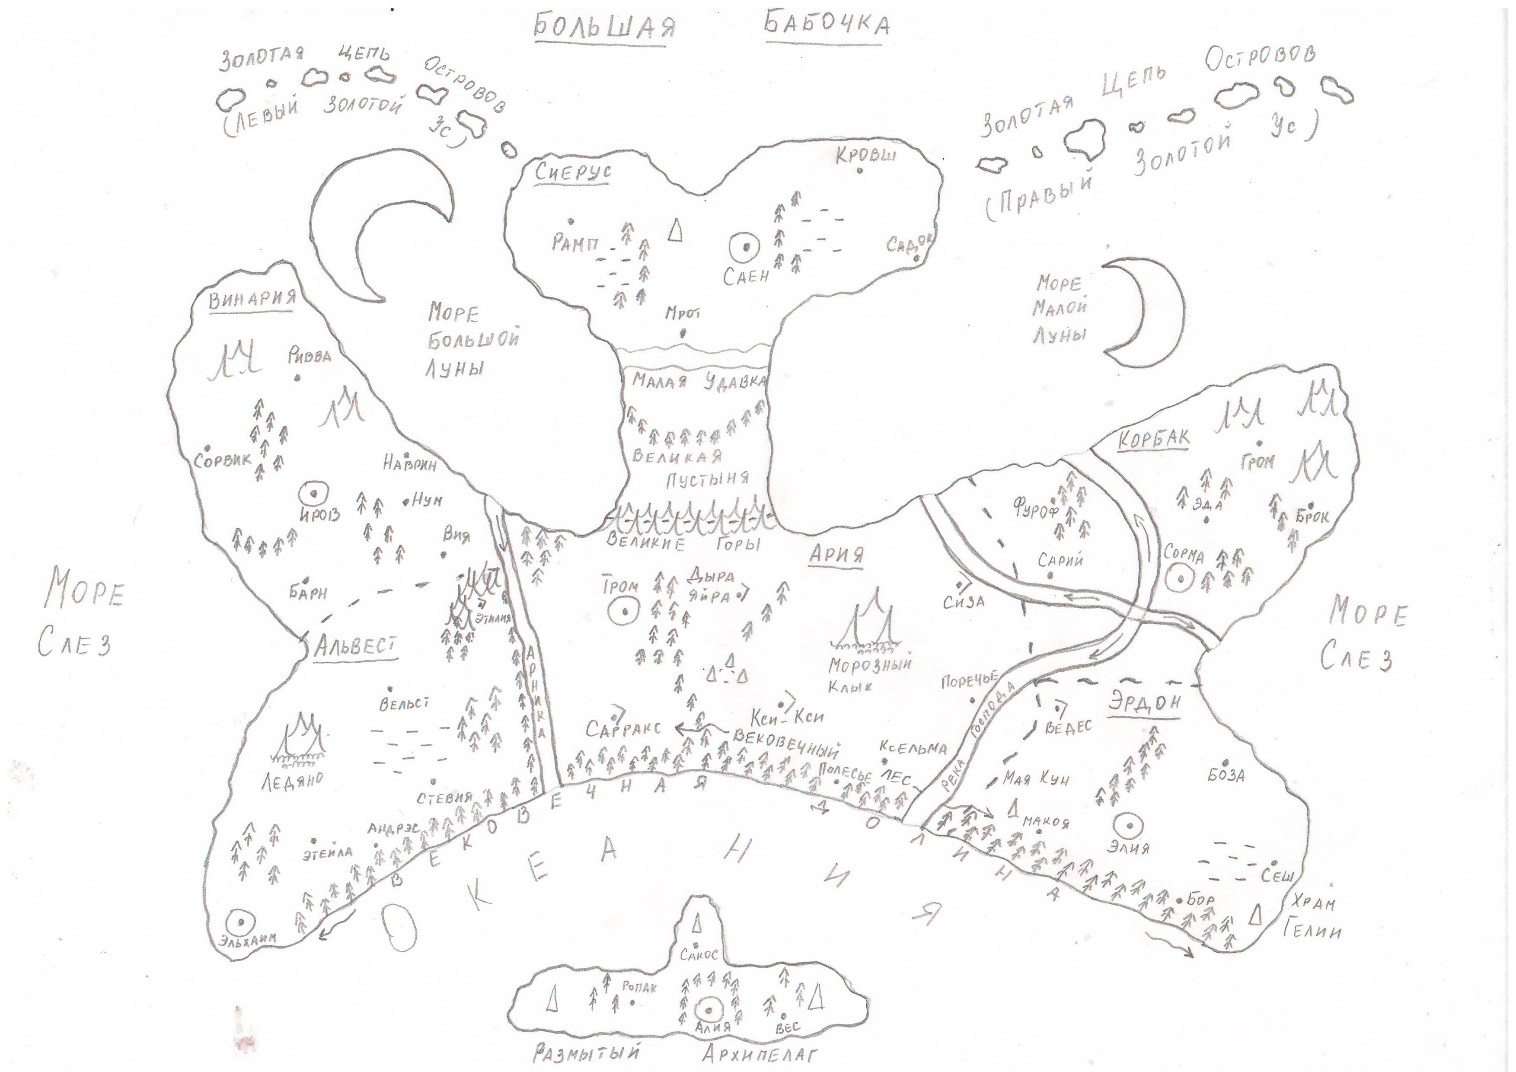 БОЛЬШАЯ БАБОЧКА
ЗОЛОТАЯ ЦЕПЬ ОСТРОВОВ
(ЛЕВЫЙ ЗОЛОТОЙ УС)
ЗОЛОТАЯ ЦЕПЬ ОСТРОВОВ
(ПРАВЫЙ ЗОЛОТОЙ УС)
СИЕРУС
КРОВШ
РАМП
САЕН
САДОК
МРОТ
МОРЕ
БОЛЬШОЙ
ЛУНЫ
МОРЕ
МАЛОЙ
ЛУНЫ
МАЛАЯ УДАВКА
ВЕЛИКАЯ
ПУСТЫНЯ
ВЕЛИКИЕ ГОРЫ
ВИНАРИЯ
РИВВА
СОРВИК
НАВРИН
ИРОВ
НУМ
ВИЯ
БАРН
ЭТАЛИЯ
АЛЬВЕСТ
ВЕЛЬСТ
ЛЕДЯНО
СТЕВИЯ
АНДРЭС
ЭТЕЙЛА
ЭЛЬХАИМ
АРНИКА
АРИЯ
ТРОМ
ДЫРА
ЯЙРА
МОРОЗНЫЙ
КЛЫК
САРРАКС
КСИ-КСИ
ВЕКОВЕЧНЫЙ
ЛЕС
ПОЛЕСЬЕ
КСЕЛЬМА
ПОРЕЧЬЕ
СИЗА
ФУРОФ
САРИЙ
РЕКА ГОСПОДА
КОРБАК
ГРОМ
ЭДА
БРОК
СОРМА
ЭРДОН
ВЕДЕС
МАЯ КУН
БОЗА
МАКОЯ
ЭЛИЯ
СЕШ
БОР
ХРАМ
ГЕЛИИ
МОРЕ
СЛЕЗ
МОРЕ
СЛЕЗ
ВЕКОВЕЧНАЯ ДОЛИНА
ОКЕАНИЯ
САКОС
РОПАК
АЛИЯ
ВЕС
РАЗМЫТЫЙ АРХИПЕЛАГ